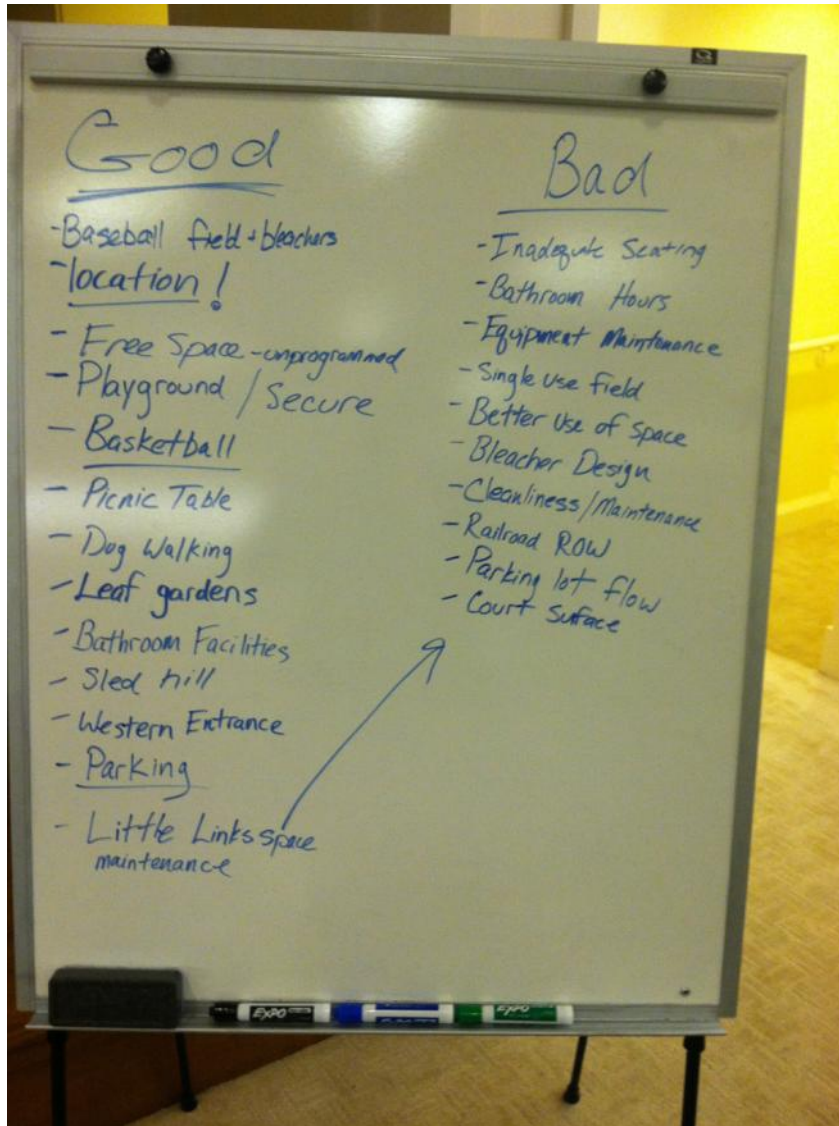 Good
-Baseball field + bleachers
-location!
- Free Space -unprogrammed
- Playground / Secure
- Basketball
- Picnic Table
- Dog Walking
- Leaf gardens
- Bathroom Facilities
- Sled hill
- Western Entrance
- Parking
- Little Links space
maintenance
Bad
- Inadequate Seating
- Bathroom Hours
- Equipment Maintenance
- Single use field
- Better use of space
- Bleacher Design
- Cleanliness/Maintenance
- Railroad ROW
- Parking lot flow
- Court Surface
EXPO
EXPO
EXPO